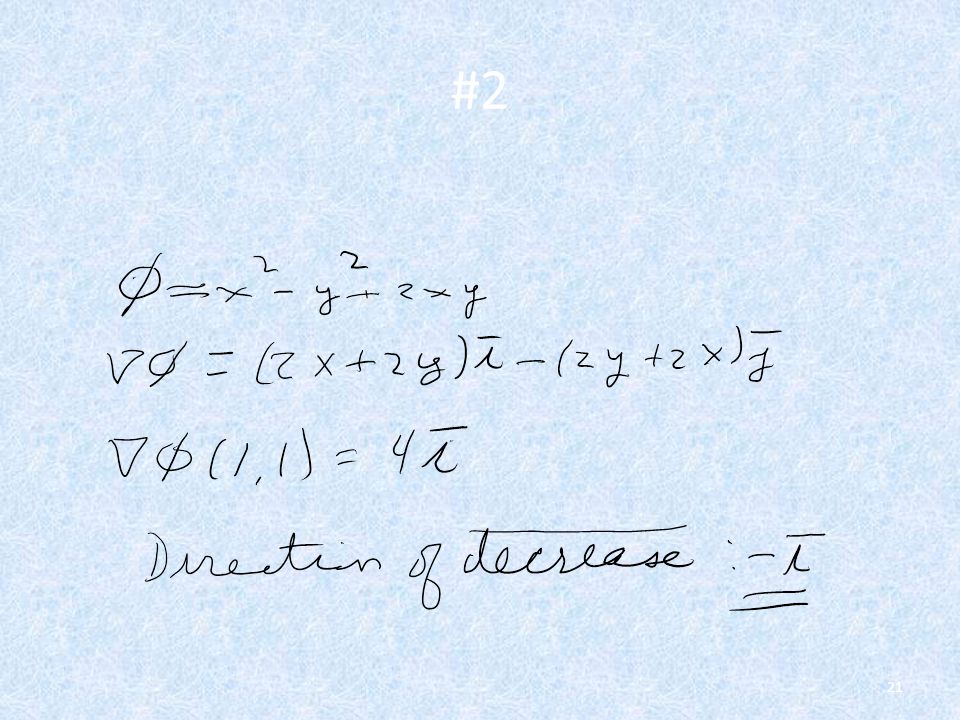 #2
φ = x² - y² + 2xy
∇φ = (2x + 2y) ī - (2y + 2x) j̄
∇φ (1,1) = 4 ī
Direction of decrease : - ī
21